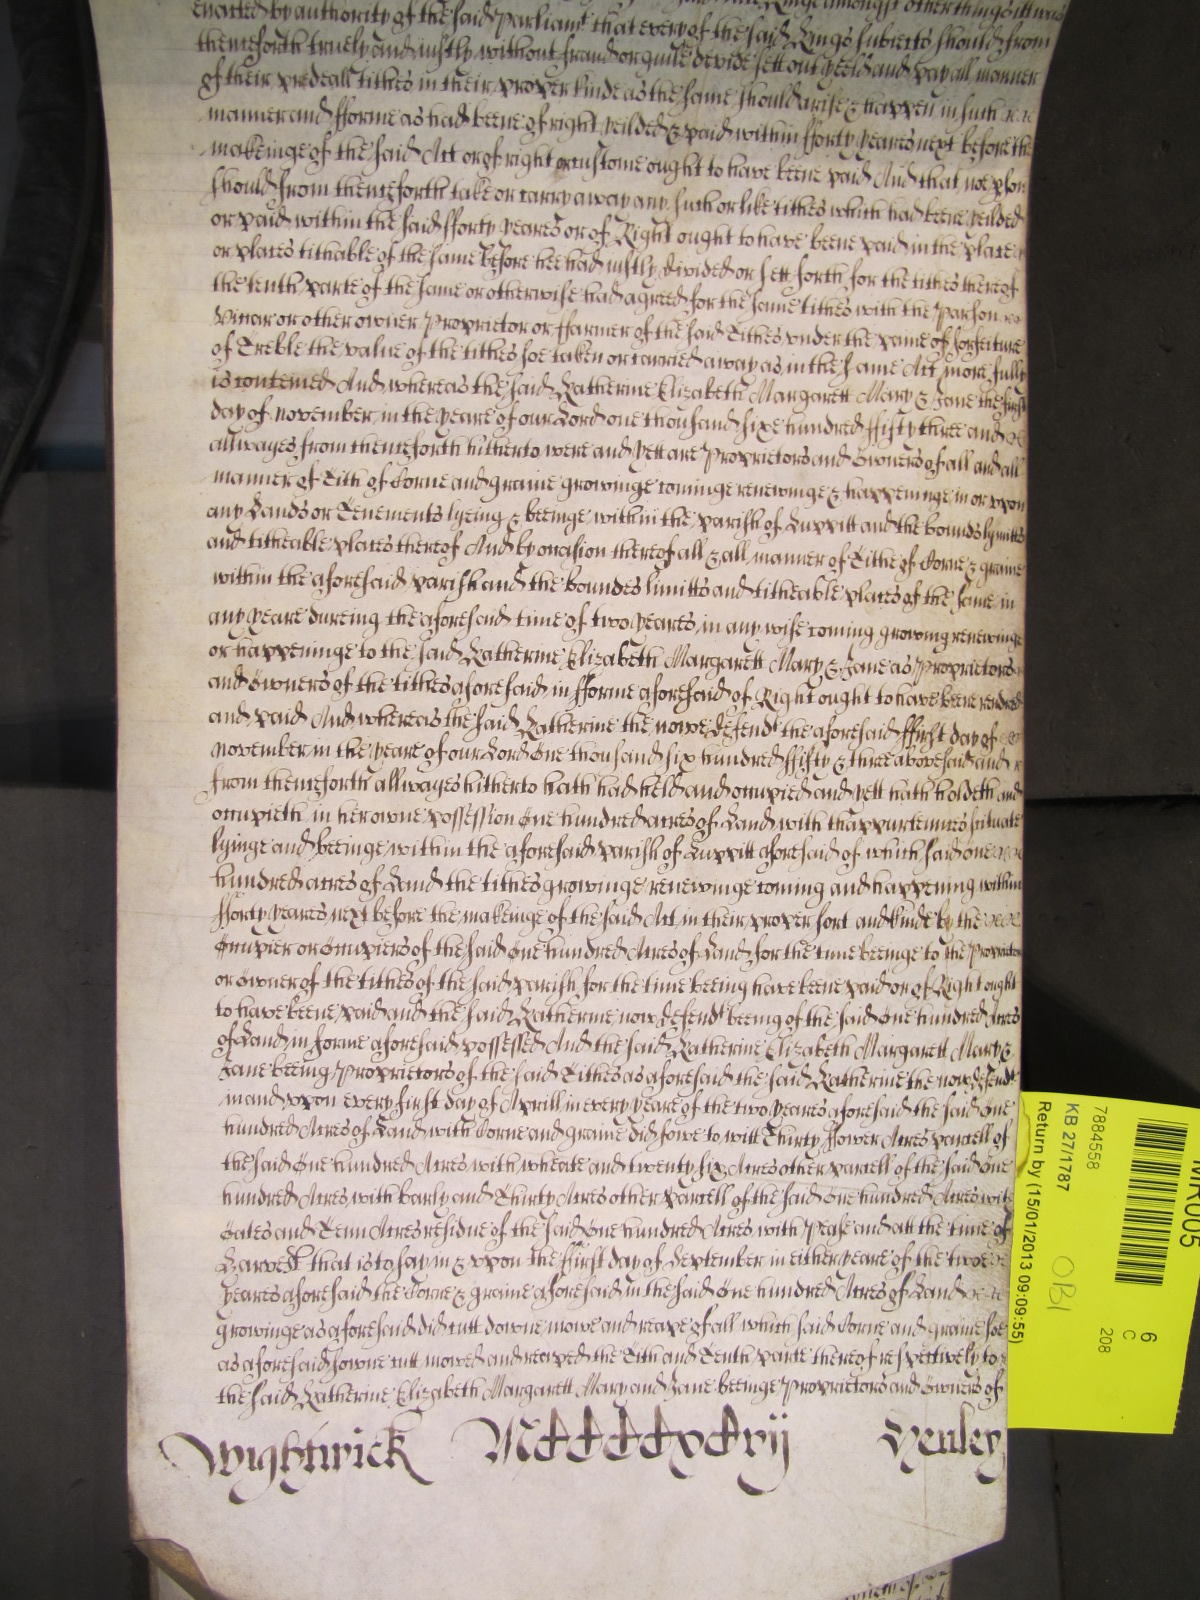 enacted by authority of the said Parliamt that every of the said Kings subiects should from
thenceforth truely and iustly without fraud or guile devide sett out yeeld and pay all manner
of their prediall tithes in their proper kinde as the same should arise & happen in such
manner and fforme as had beene of right yeilded & paid within fforty yeares next before the
makeinge of the said Act or of right or custome ought to have beene paid And that noe pson
should from thenceforth take or carry away any such or like tithes which had beene yeilded
or paid within the said fforty yeares or of Right ought to have beene paid in the place
or places tithable of the same before hee had iustly divided or sett forth for the tithes thereof
the tenth parte of the same or otherwise had agreed for the same tithes with the parson
Viccar or other owner Proprietor or ffarmer of the said Tithes under the paine of forfeiture
of Treble the value of the tithes soe taken or carried away as in the same Act more fully
is conteined And whereas the said Katherine Elizabeth Margarett Mary & Jane the first
day of november in the yeare of our Lord one thousand sixe hundred ffifty three and
allwayes from thenceforth hitherto were and yett are Proprietors and Owners of all and all
manner of Tith of Corne and graine growinge cominge renewinge & happeninge in or upon
any Lands or Tenements lyeing & beeinge within the parish of Luppitt and the bounds lymitts
and titheable places thereof And by occasion thereof all & all manner of Tithe of Corne & graine
within the aforesaid parish and the boundes limitts and titheable places of the same in
any yeare dureing the aforesaid time of two yeares in any wise coming growing renewinge
or happeninge to the said Katherine Elizabeth Margarett Mary & Jane as Proprietors
and Owners of the tithes aforesaid in fforme aforesaid of Right ought to have beene rendred
and paid And whereas the said Katherine the nowe defendt the aforesaid ffirst day of
november in the yeare of our Lord One thousand six hundred ffifty & three abovesaid and
from thenceforth allwayes hitherto hath had held and occupied and yett hath holdeth and
occupieth in her owne possession One hundred acres of Land with thappurtennces situate
lyinge and beeinge within the aforesaid parish of Luppitt aforesaid of which said one
hundred acres of Land the tithes growinge renewinge coming and happening within
fforty yeares next before the makeinge of the said Act in their proper sort and kinde by the
Occupier or Occupiers of the said One hundred Acres of Land for the time beeinge to the Proprietor
or Owner of the tithes of the said parish for the time being have beene paid or of Right ought
to have beene paid and the said Katherine now defendt beeing of the said One hundred Acres
of Land in forme aforesaid possessed And the said Katherine Elizabeth Margarett Mary &
Jane beeing Proprietors of the said Tithes as aforesaid the said Katherine the now defendt
in and upon every first day of Aprill in every yeare of the two yeares aforesaid the said One
hundred Acres of Land with Corne and graine did sowe to witt Thirty ffower Acres parcell of
the said One hundred Acres with wheate and twenty six Acres other parcell of the said One
hundred Acres with barly and Thirty Acres other parcell of the said One hundred Acres with
Oates and Tenn Acres residue of the said One hundred Acres with Pease and att the time of
Harvest that is to say in & upon the ffirst day of September in either yeare of the twoe
yeares aforesaid the Corne & graine aforesaid in the said One hundred Acres of Land
growinge as aforesaid did cutt downe mowe and reape of all which said Corne and graine soe
as aforesaid sowne cutt mowed and reaped the Tith and Tenth parte thereof respectively to
the said Katherine Elizabeth Margarett Mary and Jane beeinge Proprietors and Owners of
Wightwick
Henley
MR005
6
C
208
7884558
KB 27/1787
OBJ
Return by (15/01/2013 09:09:55)